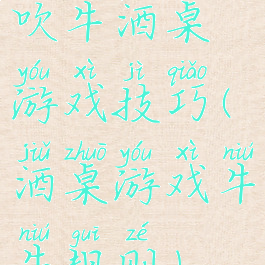 吹牛酒桌
yóu xì jì qiǎo
游戏技巧(
jiǔ zhuō yóu xì niú
酒桌游戏牛
niú guī zé
牛规则)